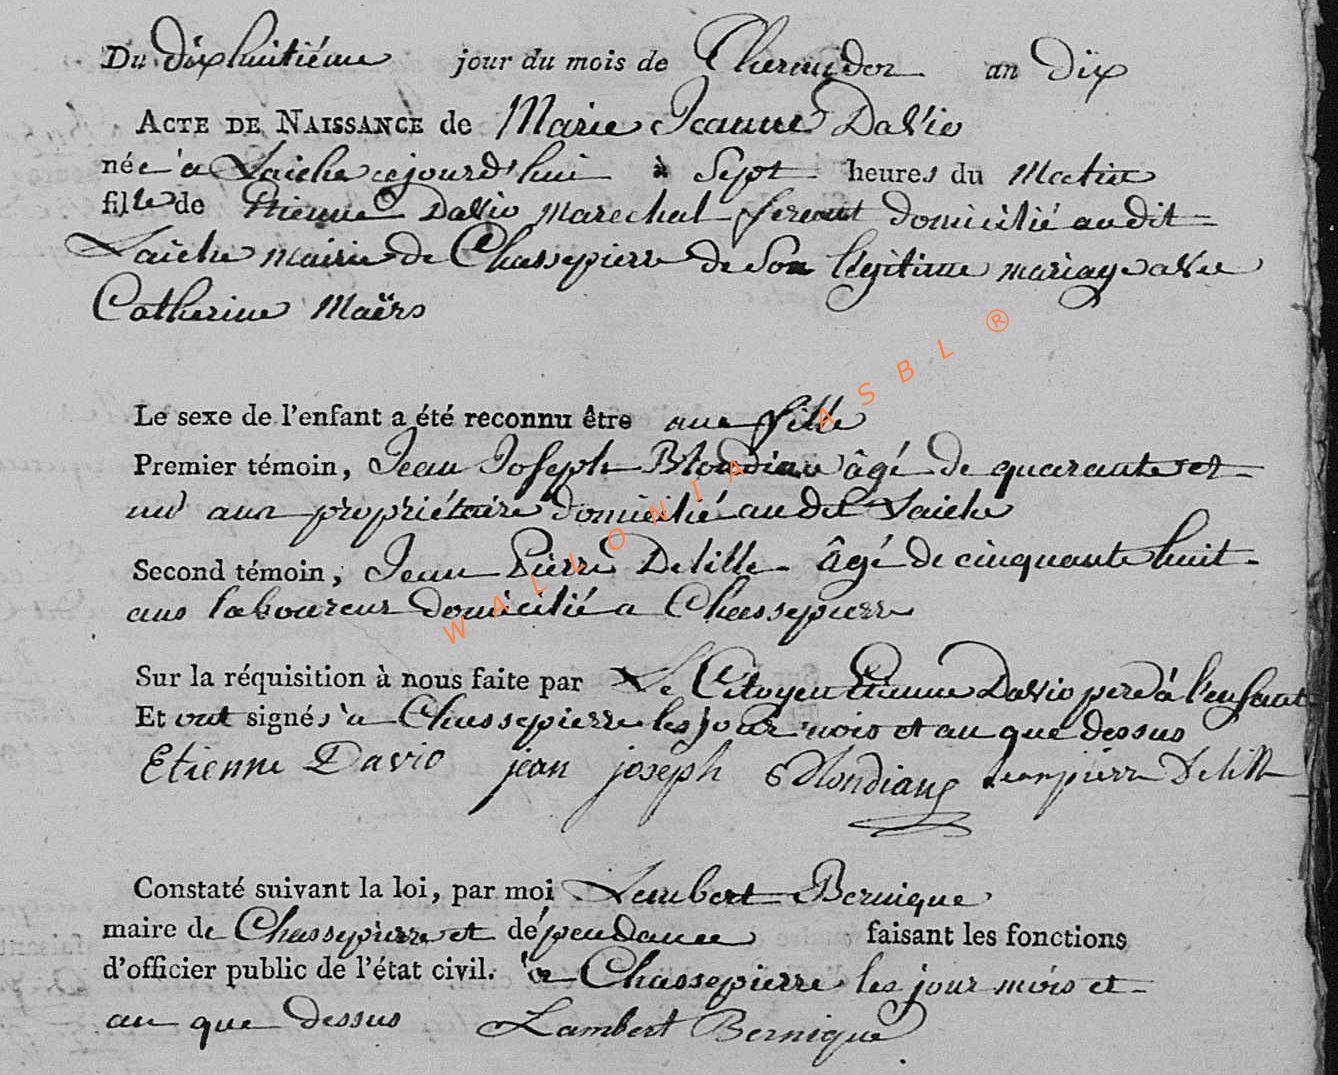 Du dixhuitiéme jour du mois de Thermidor an dix
ACTE DE NAISSANCE de Marie Jeanne Davio
née a Laiche cejourd'hui à Sept heures du Matin
fille de Etienne Davio Marechal ferant domicilié audit
Laiche mairie de Chassepierre de Son légitime mariage avec
Catherine Maërs
Le sexe de l'enfant a été reconnu être une fille
Premier témoin, Jean Joseph Blondiau âgé de quarante et
un ans propriétaire domicilié au dit Laiche
Second témoin, Jean Pierre Delille âgé de cinquante huit
ans laboureur domicilié a Chassepierre
Sur la réquisition à nous faite par Le Citoyen Etienne Davio pere à l'enfant
Et ont signés a Chassepierre les jour mois et an que dessus
Etienne Davio jean joseph Blondiaux Jean pierre Delille
Constaté suivant la loi, par moi Lambert Bernique
maire de Chassepierre et dépendance faisant les fonctions
d'officier public de l'état civil. a Chassepierre les jour mois et
an que dessus Lambert Bernique
WALLONIA ASBL ®